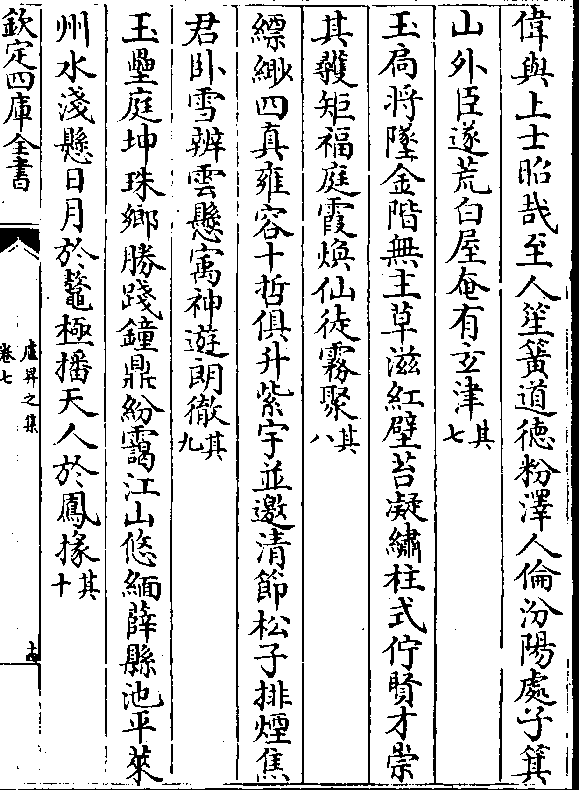 偉與上士昭哉至人笙簧道德粉澤人倫汾陽處子箕
山外臣遂荒白屋奄有玄津其七
玉扃將墜金階無主草滋紅壁苔凝繡柱式佇賢才崇
其穫矩福庭霞煥仙徒霧聚其八
縹緲四真雍容十哲俱升紫宇並邀清節松子排煙焦
君卧雪辨雲懸寓神遊朗徹其九
玉壘庭坤珠鄉勝踐鐘鼎紛靄江山悠緬薛縣池平萊
州水淺懸日月於鼇極播天人於鳳掾其十
欽定四庫全書
盧昇之集
卷七
十六